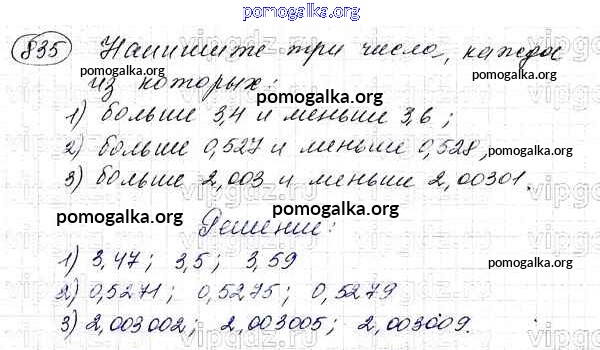 pomogalka.org
835 Напишите три числа, каждое
pomogalka.org pomogalka.org
из которых:
pomogalka.org
1) больше 3,4 и меньше 3,6;
pomogalka.org
2) больше 0,527 и меньше 0,528,
pomogalka.org
3) больше 2,003 и меньше 2,00301.
pomogalka.org pomogalka.org pomogalka.org
Решение:
1) 3,47; 3,5; 3,59
pomogalka.org
2) 0,5271; 0,5275; 0,5279
pomogalka.org
3) 2,003002; 2,003005; 2,003009.
pomogalka.org